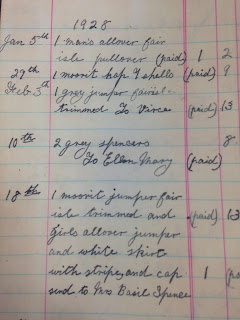 1928
Jan 5th 1 man's allover fair
isle pullover (paid) 1 2
27th 1 moorit hap & shells (paid) 9
Feb 3th 1 grey jumper fairisle
trimmed To (paid) 13
10th 2 grey spencers 8
To Ellen Mary (paid)
18th 1 moorit jumper fair
isle trimmed and (paid) 13
Girls allover jumper
and white skirt
with stripes and cap 1
send to Mrs Basil Spence